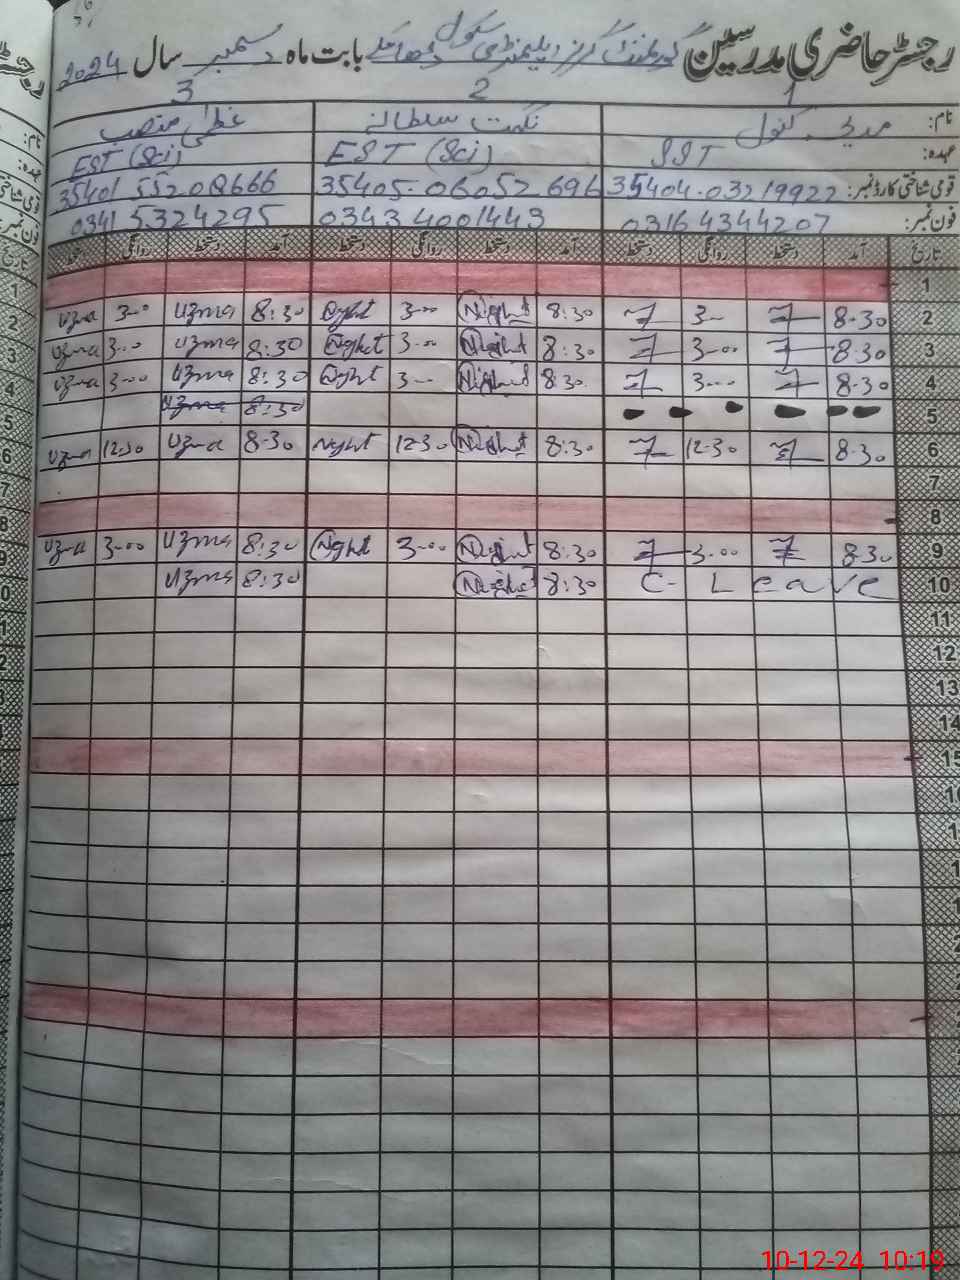 رجسٹر حاضری مدرسین گورنمنٹ گرلز ایلیمنٹری سکول بابت ماہ دسمبر سال 2024
1 2 3
نام: کنول نگہت سلطانہ عظمیٰ
عہدہ: SST EST (Sci) EST (Sci)
قومی شناختی کارڈ نمبر: 35404-03219922 35405-06052696
فون نمبر: 03164344207 03434001443 03415324295
تاریخ آمد دستخط روانگی دستخط آمد دستخط روانگی دستخط آمد دستخط روانگی دستخط
1
2 8-30 3-00 8:30 Night 3-00 8:30 Uzma 3-00 Uzma
3 8-30 3-00 8:30 Night 3-00 Night 8:30 Uzma 3-00 Uzma
4 8-30 3-00 8:30 Night 3-00 8:30 Uzma 3-00 Uzma
5 8:30 Uzma
6 8-30 12-30 8:30 Night 12-30 Night 8-30 Uzma 12:30 Uzma
7
8
9 8-30 3-00 8:30 Night 3-00 Night 8:30 Uzma 3-00 Uzma
10 C-Leave 8:30 Night 8:30 Uzma
11
12
13
14
15
10-12-24 10:19